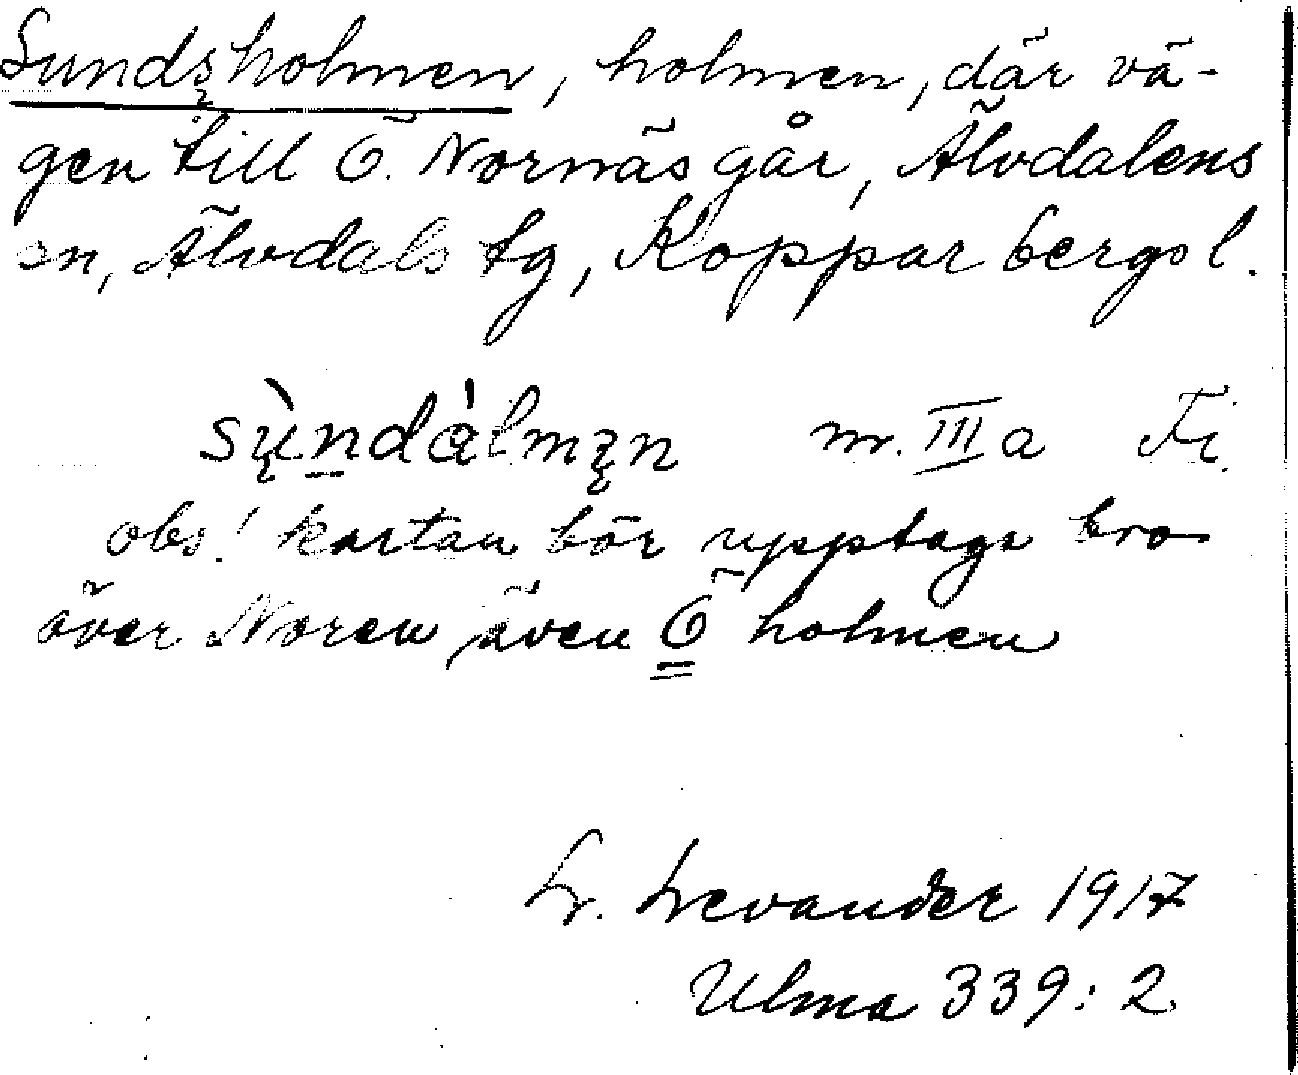 Sundsholmen, holmen, där vä-
gen till Ö. Nornäs går, Älvdalens
sn, Älvdals tg, Kopparbergs l.
sų̀n̲dàlmᶒn m. III a Fi.
obs! kartan bör upptaga bro
över Noren, även Ö holmen
L. Levander 1917
Ulma 339:2